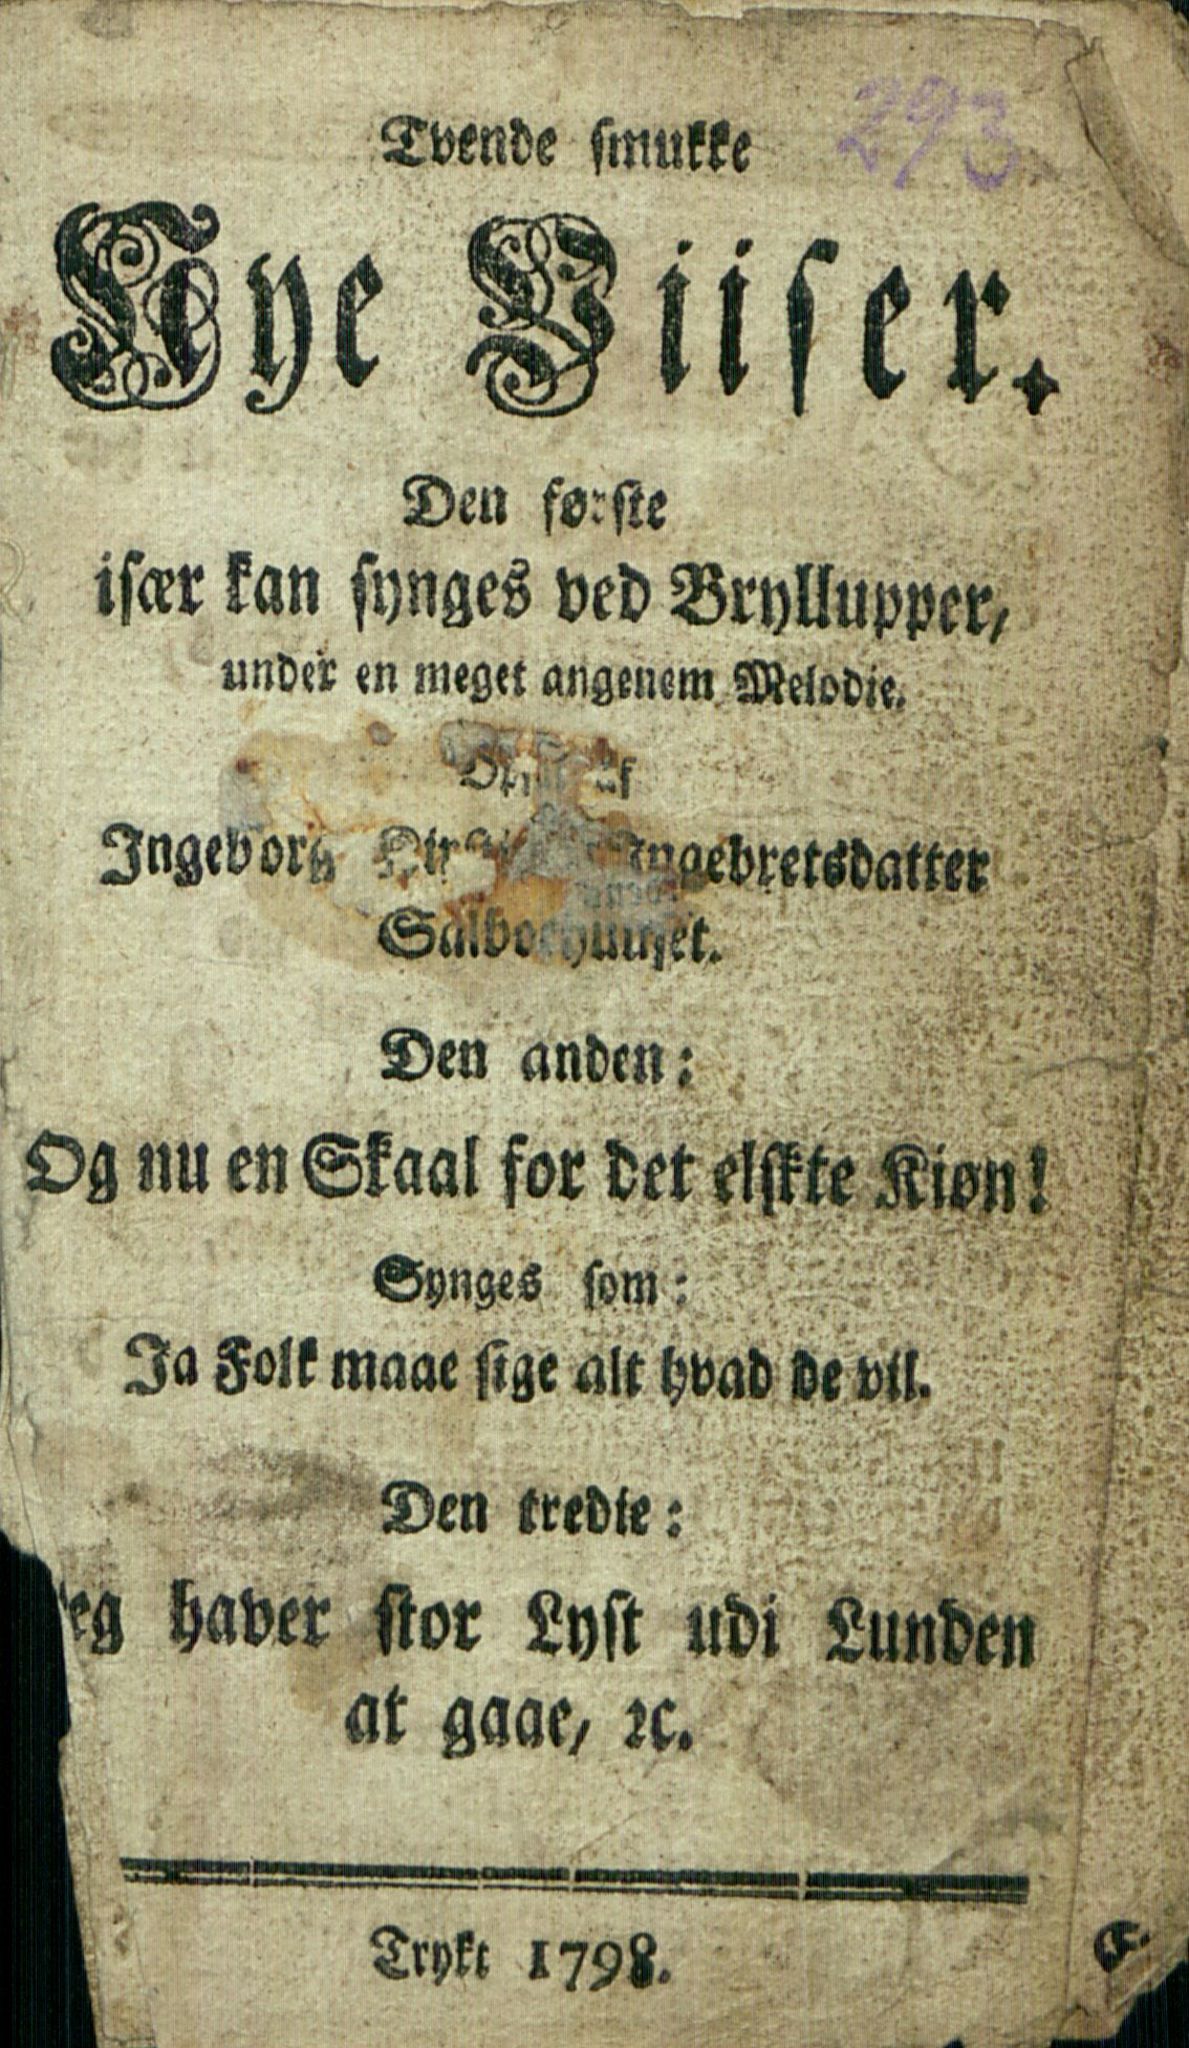 293
Tvende smukke
Nye Viiser.
Den første
især kan synges ved Bryllupper,
under en meget angenem Melodie.
Ingeborg Ingebretsdatter
Den anden:
Og nu en Skaal for det elskte Kiøn!
Synges som:
Ja Folk maae sige alt hvad de vil.
Den tredie:
eg haver stor Lyst udi Lunden
at gaae, ꝛc.
Trykt 1798.